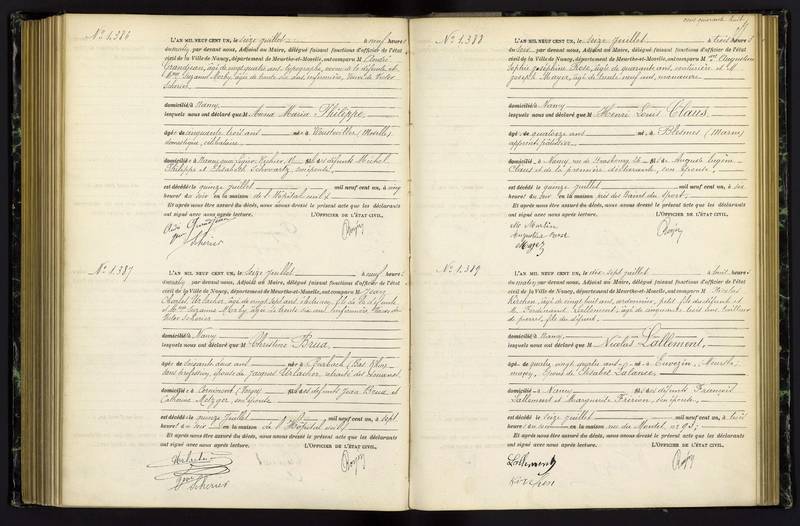 No 1,386
L'AN MIL NEUF CENT UN, le seize juillet à neuf heures
du matin, par devant nous, Adjoint au Maire, délégué faisant fonctions d'officier de l'état
civil de la Ville de Nancy, département de Meurthe-et-Moselle, ont comparu M André
Grandjean, âgé de vingt quatre ans, typographe, neveu de la défunte et
Mme Suzanne Morby, âgée de trente six ans, infirmière, Veuve de Victor
Scherier
domicilié à Nancy
lesquels nous ont déclaré que M Anna Maria Philippe,
âgée de cinquante trois ans née à (Moselle)
domestique, célibataire
domicilié à Nancy fille des défunts Michel
Philippe et Elisabeth Schwartz,
est décédée le quinze juillet mil neuf cent un, à cinq
heures du soir en la maison de l'Hôpital civil
Et après nous être assuré du décès, nous avons dressé le présent acte que les déclarants
ont signé avec nous après lecture. L'OFFICIER DE L'ÉTAT CIVIL,
Grandjean
Scherier
No 1,387
L'AN MIL NEUF CENT UN, le seize juillet à neuf heures
du matin, par devant nous, Adjoint au Maire, délégué faisant fonctions d'officier de l'état
civil de la Ville de Nancy, département de Meurthe-et-Moselle, ont comparu M Jean
Charles âgé de vingt sept ans, fils de la défunte
et Mme Suzanne Morby, âgée de trente six ans, infirmière, Veuve de
Victor Scherier
domicilié à Nancy
lesquels nous ont déclaré que M Christine Brua,
âgée de soixante deux ans née à (Bas Rhin)
sans profession, épouse de Jacques retraité des Douanes
domiciliée à Cornimont (Vosges) fille des défunts Jean Brua et
Catherine Metzger, son épouse
est décédée le quinze juillet mil neuf cent un, à sept
heures du soir en la maison de l'Hôpital civil
Et après nous être assuré du décès, nous avons dressé le présent acte que les déclarants
ont signé avec nous après lecture. L'OFFICIER DE L'ÉTAT CIVIL,
Scherier
No 1,388
L'AN MIL NEUF CENT UN, le seize juillet à trois heures
du soir, par devant nous, Adjoint au Maire, délégué faisant fonctions d'officier de l'état
civil de la Ville de Nancy, département de Meurthe-et-Moselle, ont comparu M Augustine
Sophie Joséphine Rose, âgée de quarante ans, couturière et M
Joseph Mayer, âgé de trente neuf ans, manœuvre
domicilié à Nancy
lesquels nous ont déclaré que M Henri Louis Claus
âgé de quatorze ans né à Blesmes (Marne)
apprenti pâtissier
domicilié à Nancy, rue de Strasbourg, fils de Auguste Eugène
Claus et de la première déclarante, son épouse
est décédé le quinze juillet mil neuf cent un, à six
heures du soir en la maison près des Bains du Sport;
Et après nous être assuré du décès, nous avons dressé le présent acte que les déclarants
ont signé avec nous après lecture. L'OFFICIER DE L'ÉTAT CIVIL,
Augustine Rose
Mayer
No 1,389
L'AN MIL NEUF CENT UN, le dix sept juillet à huit heures
du matin, par devant nous, Adjoint au Maire, délégué faisant fonctions d'officier de l'état
civil de la Ville de Nancy, département de Meurthe-et-Moselle, ont comparu M Nicolas
Kirchen, âgé de vingt huit ans, cordonnier, petit fils du défunt et
M Ferdinand Lallement, âgé de cinquante trois ans, tailleur
de pierres, fils du défunt
domicilié à Nancy
lesquels nous ont déclaré que M Nicolas Lallement,
âgé de quatre vingt quatre ans né à (Meurthe)
époux de Elisabeth
domicilié à Nancy fils des défunts François
Lallement et Marguerite son épouse
est décédé le seize juillet mil neuf cent un, à trois
heures du soir en la maison rue du Montet, no 93;
Et après nous être assuré du décès, nous avons dressé le présent acte que les déclarants
ont signé avec nous après lecture. L'OFFICIER DE L'ÉTAT CIVIL,
Lallement
Kirchen